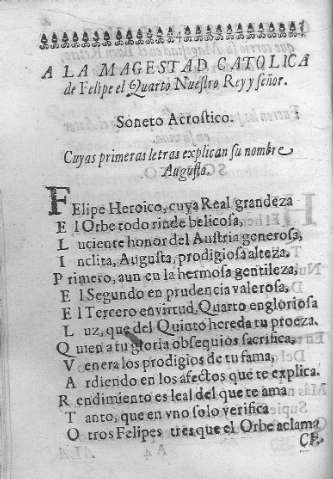 A LA MAGESTAD CATOLICA
de Felipe el Quarto Nuestro Rey y señor.
Soneto Acrostico.
Cuyas primeras letras explican su nombre
Augusto.
FElipe Heroico, cuya Real grandeza
El Orbe todo rinde belicosa,
Luciente honor del Austria generosa,
Inclita, Augusta, prodigiosa alteza.
Primero, aun en la hermosa gentileza,
El Segundo en prudencia valerosa,
El Tercero en virtud, Quarto en gloriosa
Luz, que del Quinto hereda tu proeza.
Quien a tu gloria obsequios sacrifica,
Venera los prodigios de tu fama,
Ardiendo en los afectos que te explica.
Rendimiento es leal del que te ama
Tanto, que en vno solo verifica
Otros Felipes tres que el Orbe aclama